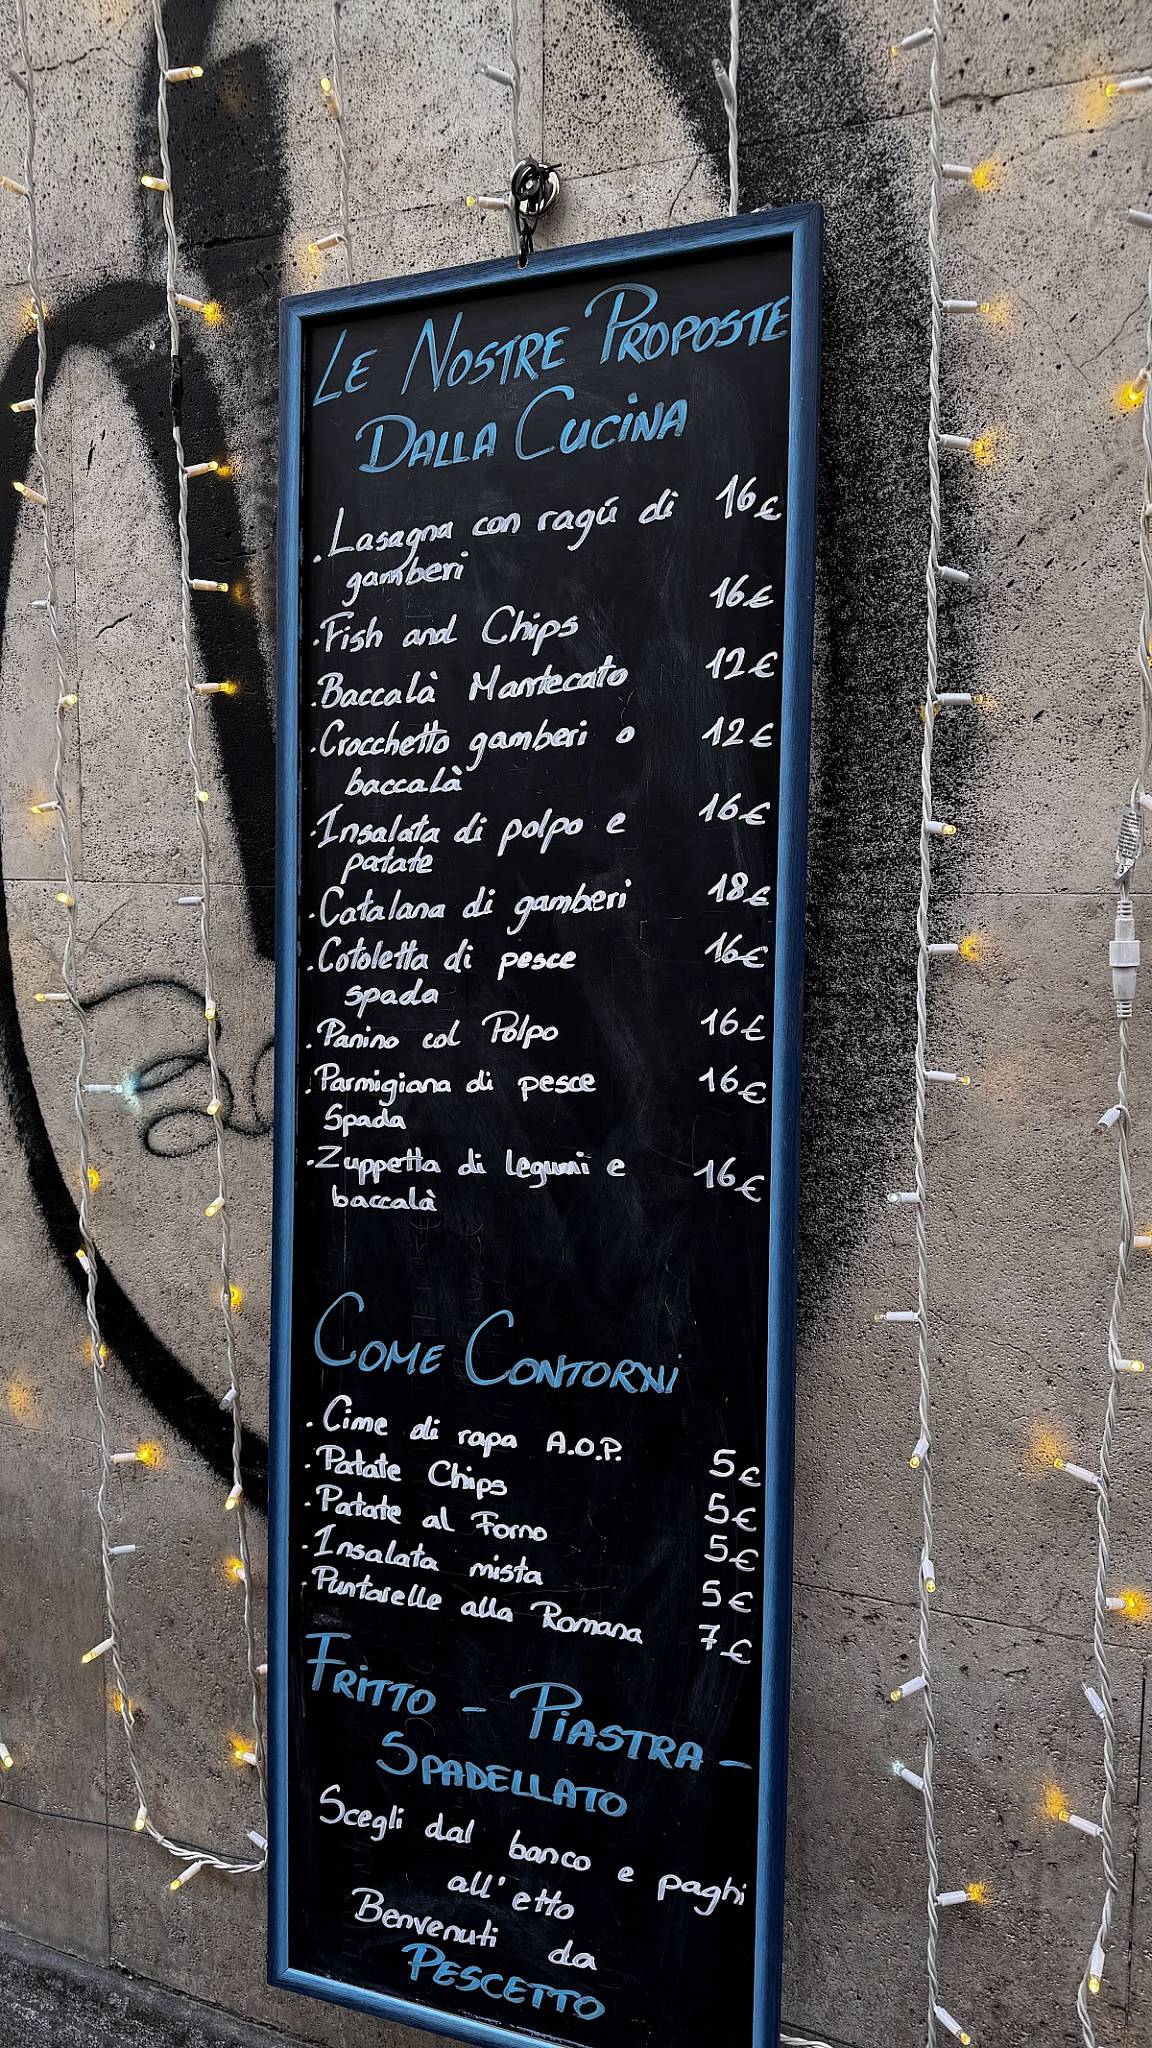 LE NOSTRE PROPOSTE
DALLA CUCINA
. Lasagna con ragú di 16€
gamberi
. Fish and Chips 16€
. Baccalà Mantecato 12€
. Crocchetto gamberi o 12€
baccalà
. Insalata di polpo e 16€
patate
. Catalana di gamberi 18€
. Cotoletta di pesce 16€
spada
. Panino col Polpo 16€
. Parmigiana di pesce 16€
Spada
. Zuppetta di legumi e 16€
baccalà
COME CONTORNI
. Cime di rapa A.O.P. 5€
. Patate Chips 5€
. Patate al Forno 5€
. Insalata mista 5€
. Puntarelle alla Romana 7€
FRITTO - PIASTRA -
SPADELLATO
Scegli dal banco e paghi
all'etto
Benvenuti da
PESCETTO